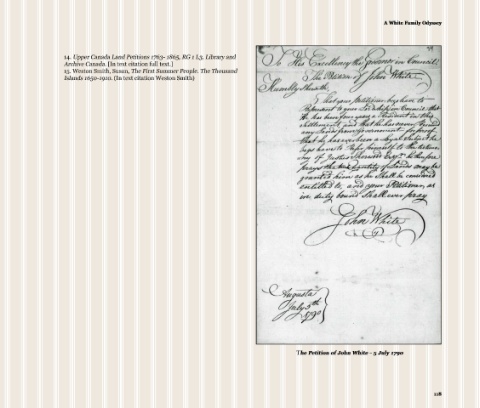 A White Family Odyssey
14. Upper Canada Land Petitions 1763- 1865, RG 1 L3. Library and
Archive Canada. [In text citation full text.]
15. Weston Smith, Susan, The First Summer People. The Thousand
Islands 1650-1910. (In text citation Weston Smith)
To His Excellency the Governor in Council
The Petition of John White
Humbly Sheweth
That your Petitioner begs leave to
Represent to your Lordship in Council that
He has been four years a Resident in this
settlement and that he has never
any Lands from Government for proof
that he has ever been a loyal Subject he
begs leave to
of Justus Sherwood Esqr. he therefore
prays the quantity of Lands may be
granted him as he shall be considered
entitled to, and your Petitioner, as
in duty bound shall ever pray
John White
Augusta
July 5th
1790
The Petition of John White - 5 July 1790
128